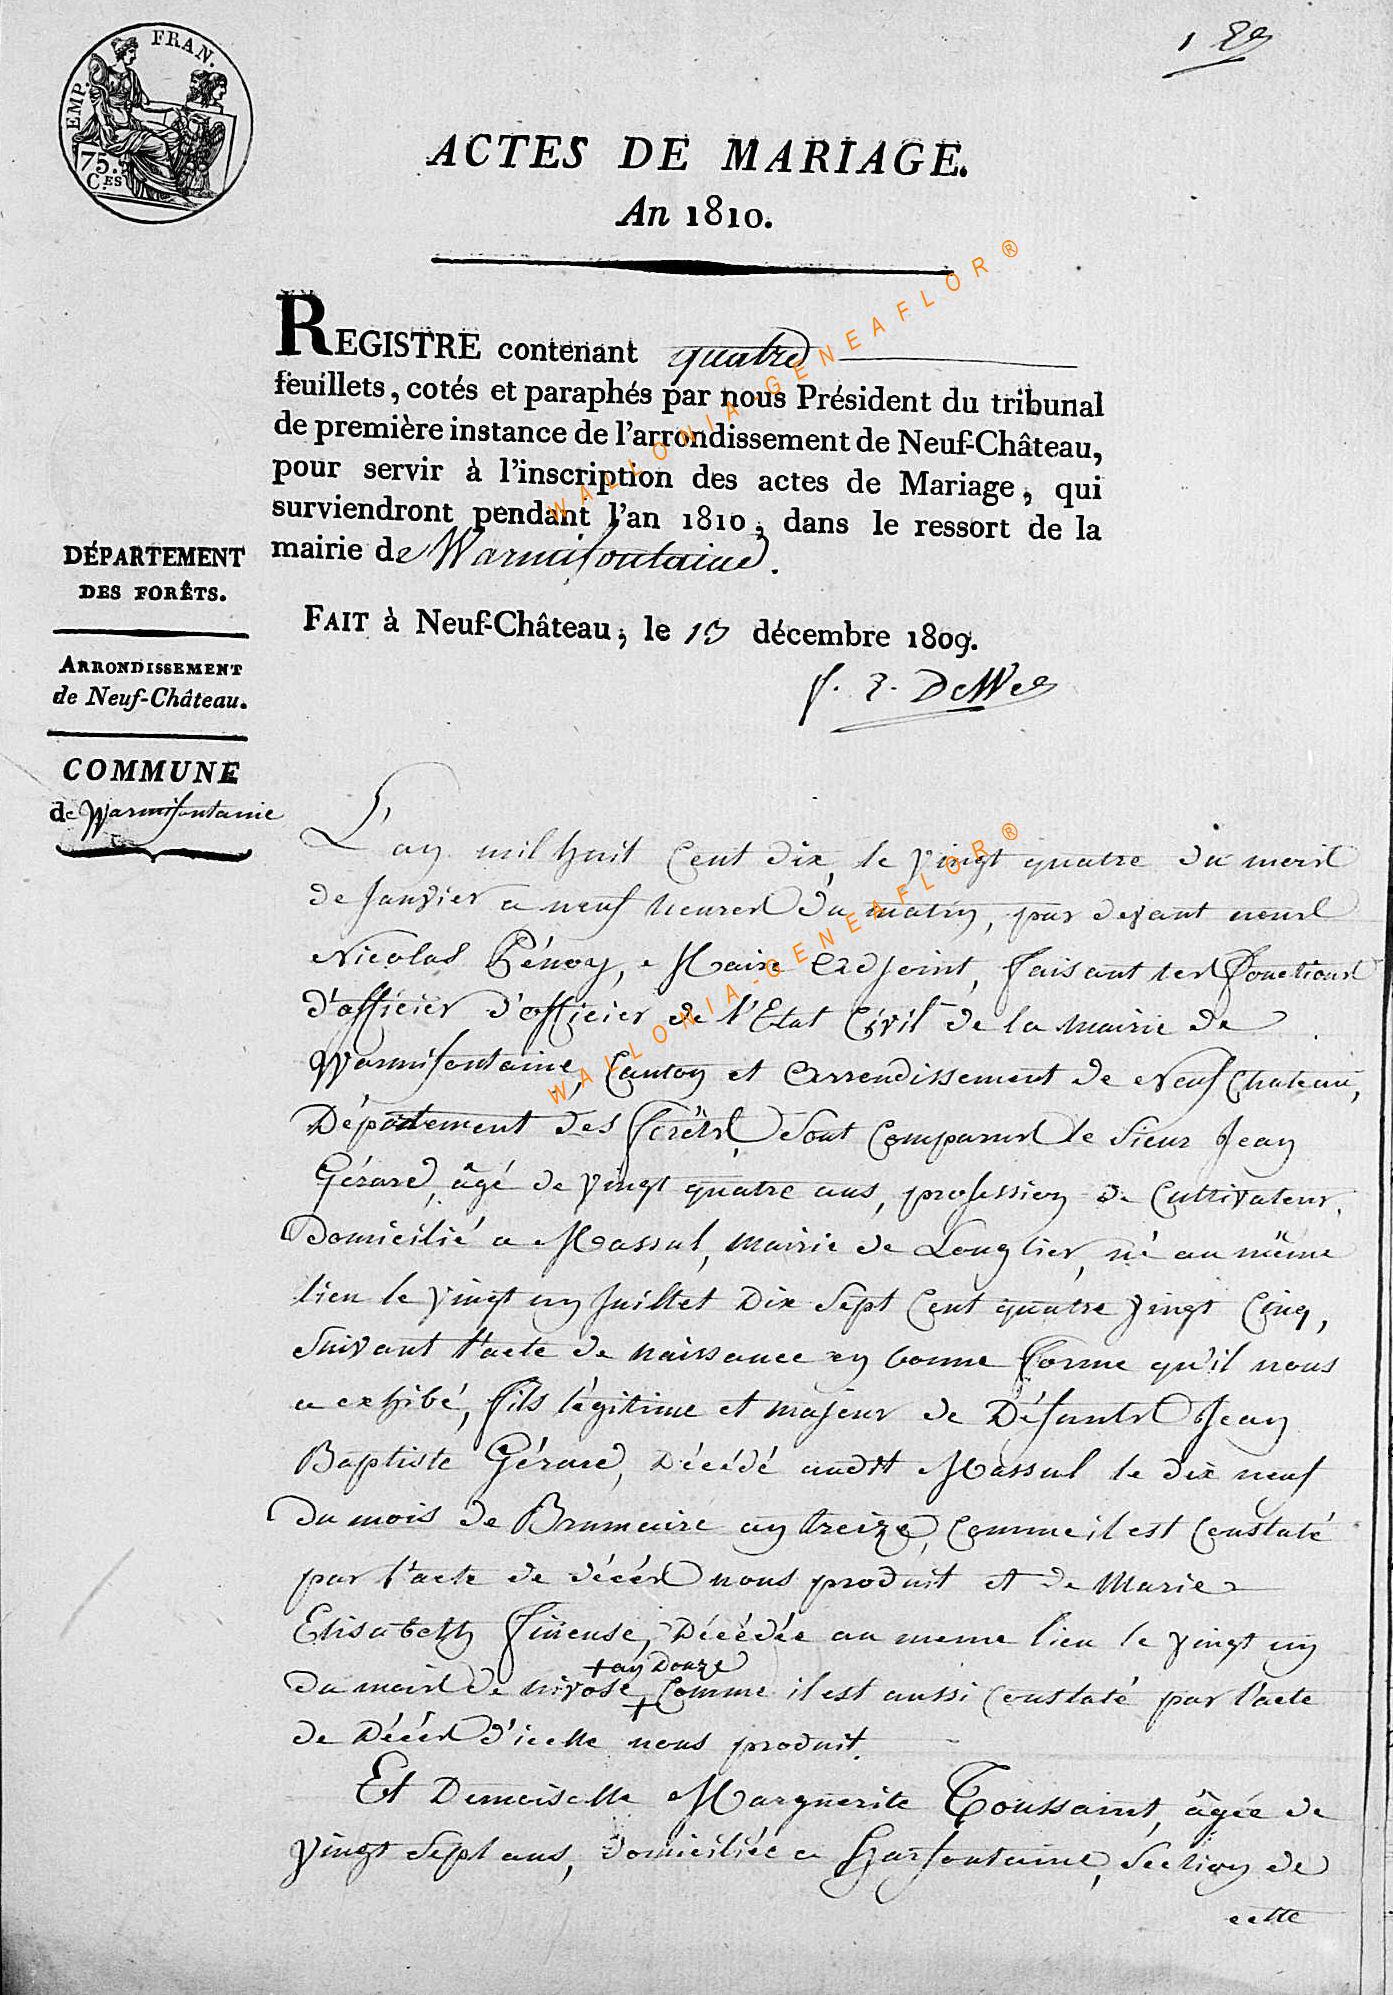 EMP. FRAN.
75.
C.ES
ACTES DE MARIAGE.
An 1810.
REGISTRE contenant quatre
feuillets, cotés et paraphés par nous Président du tribunal
de première instance de l'arrondissement de Neuf-Château,
pour servir à l'inscription des actes de Mariage, qui
surviendront pendant l'an 1810, dans le ressort de la
mairie de Warmifontaine.
FAIT à Neuf-Château, le 13 décembre 1809.
DÉPARTEMENT
DES FORÊTS.
ARRONDISSEMENT
de Neuf-Château.
COMMUNE
de Warmifontaine
L'an mil huit Cent dix, le vingt quatre du mois
de Janvier a neuf heures du matin, par devant nous
Nicolas Génoy, Maire Adjoint, faisant les fonctions
d'officier d'officier de l'Etat Civil de la mairie de
Warmifontaine, Canton et arrondissement de Neufchateau,
Département des forêts, Sont Comparus le Sieur Jean
Gérard, âgé de vingt quatre ans, profession de Cultivateur,
Domicilié a Massul, mairie de Longlier, né au même
lien le vingt un Juillet Dix Sept Cent quatre vingt Cinq,
Suivant l'acte de naissance en bonne forme qu'il nous
a exhibé, fils légitime et majeur de Défunts Jean
Baptiste Gérard, Décédé audit Massul le dix neuf
du mois de Brumaire an treize, Comme il est Constaté
par l'acte de décès nous produit et de Marie
Elisabeth Fineuse, Décédée au meme lieu le vingt un
du mois de nivose, + an Douze + Comme il est aussi Constaté par l'acte
de Décès d'icelle nous produit.
Et Demoiselle Marguerite Toussaint, âgée de
vingt Sept ans, domiciliée a Harfontaine, Section de
cette
WALLONIA-GENEAFLOR®
WALLONIA-GENEAFLOR®